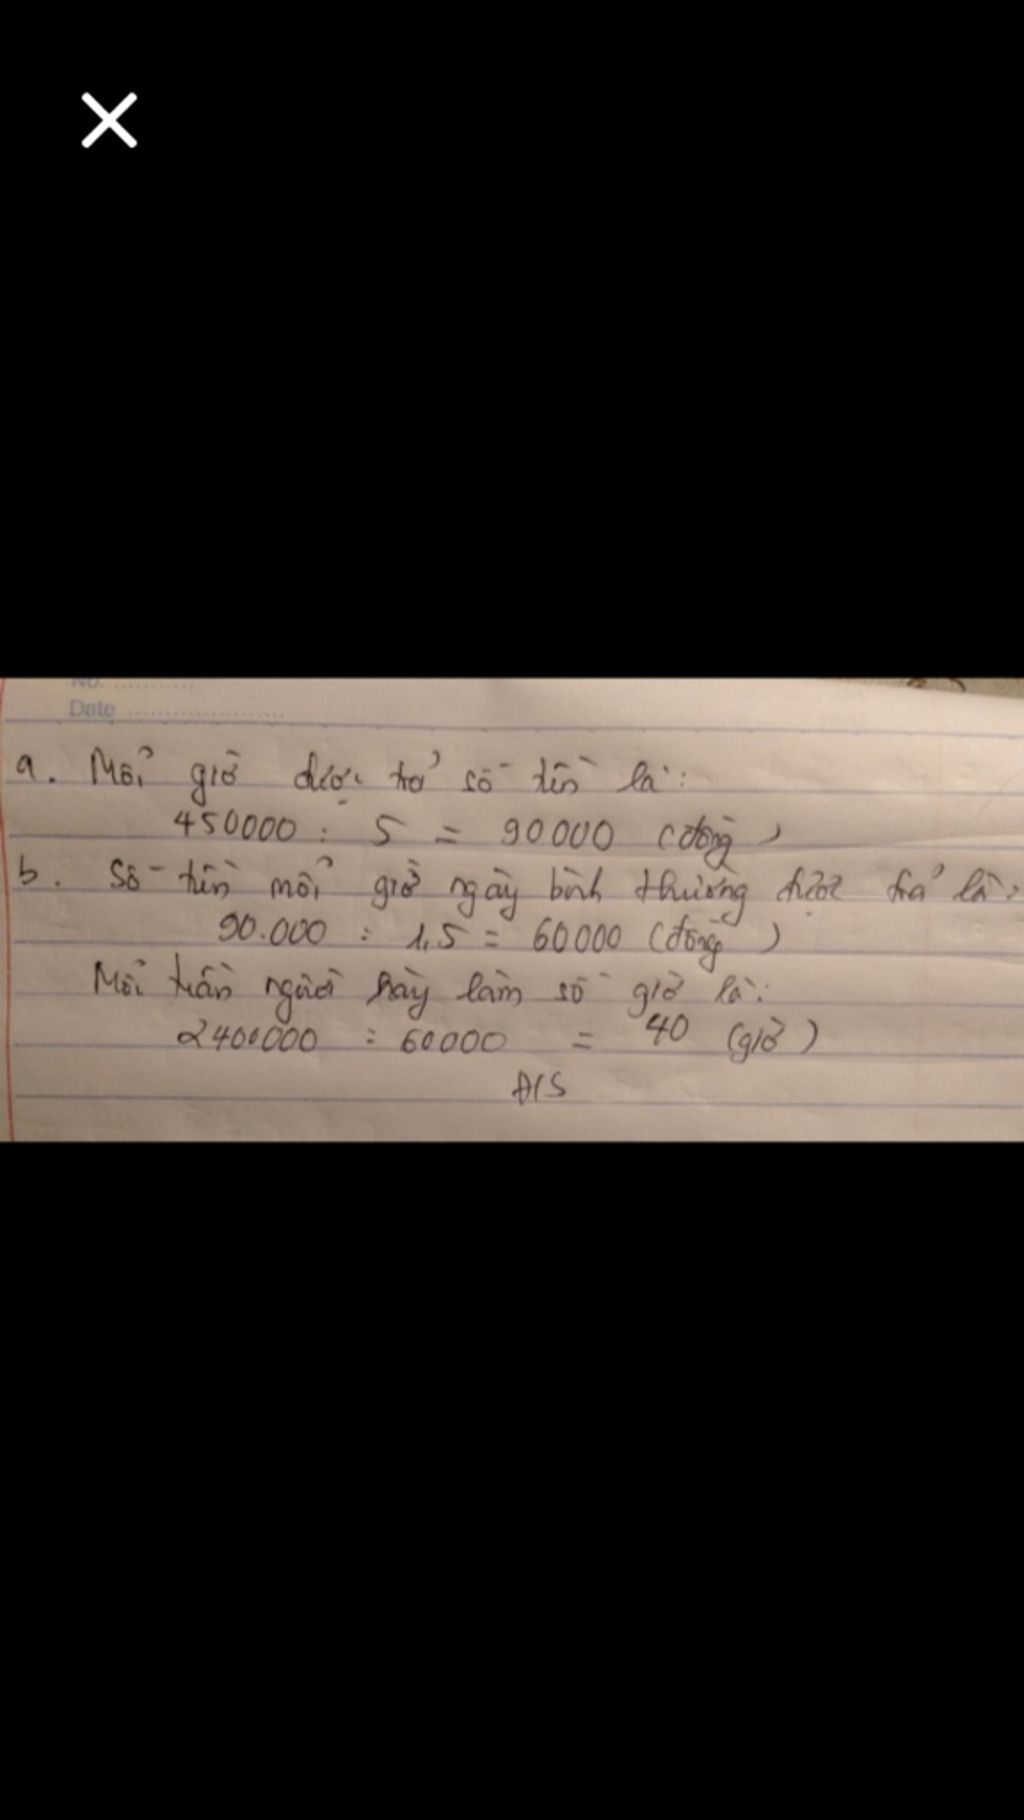 No. ...........
Date ......................
a. Mỗi giờ được trả số tiền là:
450000 : 5 = 90000 (đồng)
b. Số tiền mỗi giờ ngày bình thường được trả là:
90.000 : 1,5 = 60000 (đồng)
Mỗi tuần người này làm số giờ là:
2400000 : 60000 = 40 (giờ)
Đ/S